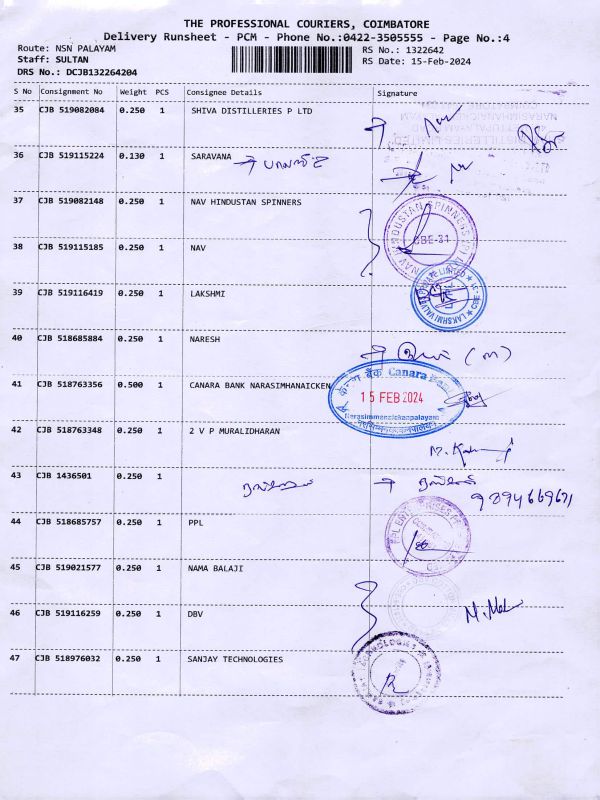 THE PROFESSIONAL COURIERS, COIMBATORE
Delivery Runsheet - PCM - Phone No.:0422-3505555 - Page No.:4
Route: NSN PALAYAM RS No.: 1322642
Staff: SULTAN RS Date: 15-Feb-2024
DRS No.: DCJB132264204
S No Consignment No Weight PCS Consignee Details Signature
35 CJB 519082084 0.250 1 SHIVA DISTILLERIES P LTD
36 CJB 519115224 0.130 1 SARAVANA
37 CJB 519082148 0.250 1 NAV HINDUSTAN SPINNERS
38 CJB 519115185 0.250 1 NAV
CBE-31
39 CJB 519116419 0.250 1 LAKSHMI
40 CJB 518685884 0.250 1 NARESH
केनरा बैंक Canara Bank
41 CJB 518763356 0.500 1 CANARA BANK NARASIMHANAICKEN
15 FEB 2024
Narasimmanaickenpalayam
42 CJB 518763348 0.250 1 2 V P MURALIDHARAN
43 CJB 1436501 0.250 1
9894669671
44 CJB 518685757 0.250 1 PPL
45 CJB 519021577 0.250 1 NAMA BALAJI
46 CJB 519116259 0.250 1 DBV
47 CJB 518976032 0.250 1 SANJAY TECHNOLOGIES